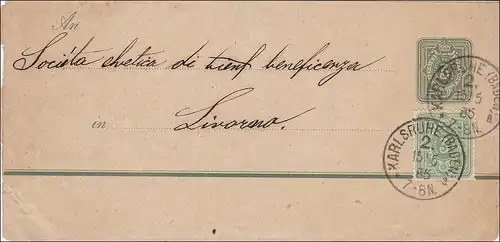 An
Società elvetica di beneficenza
in
Livorno.
KARLSRUHE (BADEN)
2
85
KARLSRUHE (BADEN)
2.
15
85
7-8N.